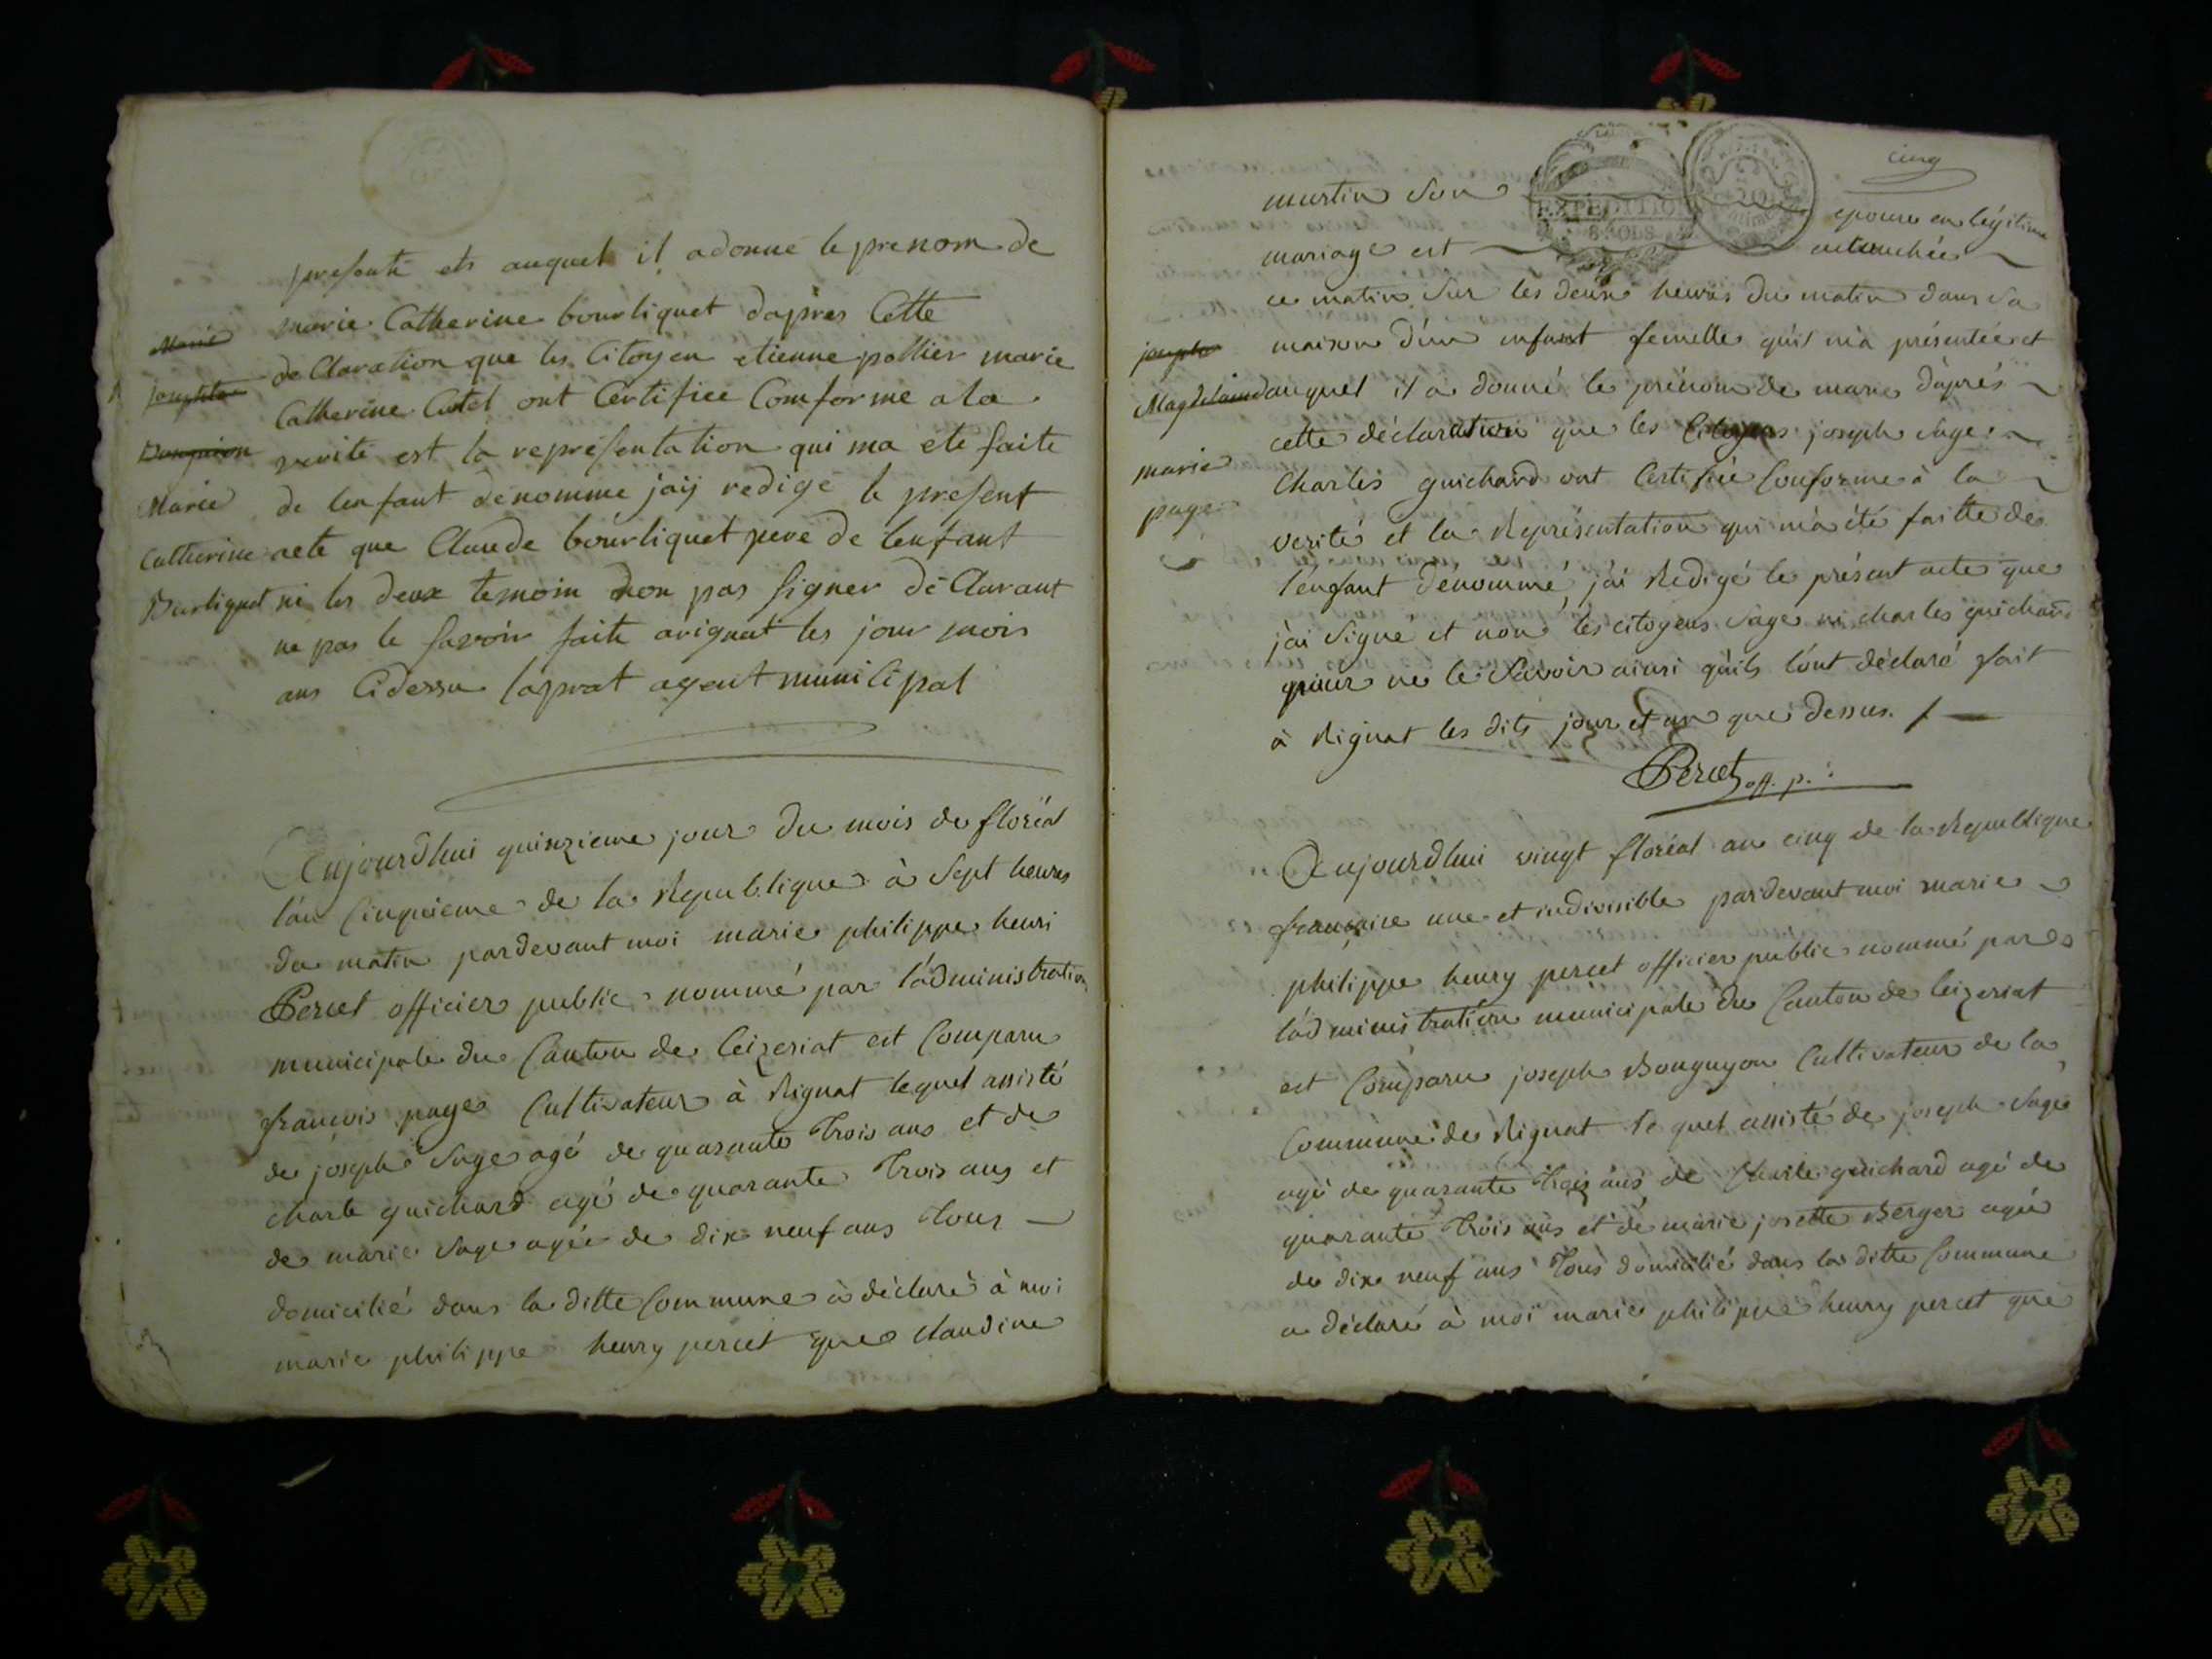 presenté ets auquel il adonné le prenom de
marie Catherine bourliquet daprès Cette
de Claration que les Citoyen etienne pallier marie
Catherine Cutel ont Certifiee Comforme a la
verité est la representation qui ma ete faite
de lenfant denommé jaij redigé le present
acte que Claude bourliquet pere de lenfant
ni les deux temoin non pas signer dé Clarant
ne pas le savoir faite arignat les jour mois
ans Cidessu laprat agent municipal
Marie
josephte
Marie
Catherine
Burliquet
Aujourdhui quinzieme jour du mois de floréal
l'an Cinquieme de la Republique à Sept heures
du matin pardevant moi marie philippe henri
Percet officier public nommé par l'administration
municipale du Canton de Ceizeriat est Comparu
françois page Cultivateur à Rignat lequel assisté
de joseph Sage agé de quarante trois ans et de
charle guichard agé de quarante trois ans et
de marie Sage agée de dix neuf ans tous
domicilié dans la ditte Commune à déclaré à moi
marie philippe henry percet que claudine
cinq
EXPEDITION
8 SOLS
martin son epouse en légitime
mariage est accouchée
ce matin Sur les deux heures du matin dans sa
maison d'un enfant femelle qu'il m'a présentée et
auquel il a donné le prénom de marie d'après
cette déclaration que les Citoyens joseph Sage
Charles guichard ont Certifiée Conforme à la
verité et la Représentation qui m'a été faitte de
l'enfant dénommé, j'ai Redigé le présent acte que
j'ai Signé et non les citoyens Sage ni charles guichard
pour ne le Savoir ainsi qu'ils l'ont déclaré fait
à Rignat les dits jour et an que dessus. /
josephe
Magdelaine
marie
page
Percet off. p.
Aujourdhui vingt floréal an cinq de la Republique
française une et indivisible pardevant moi marie
philippe henry percet officier public nommé par
l'administration municipale du Canton de Ceizeriat
est Comparu joseph Bouguyon Cultivateur de la
Commune de Rignat le quel assisté de joseph Sage
agé de quarante trois ans de Charle guichard agé de
quarante trois ans et de marie josette Berger agée
de dix neuf ans tous domicilié dans la ditte Commune
a déclaré à moi marie philippe henry percet que